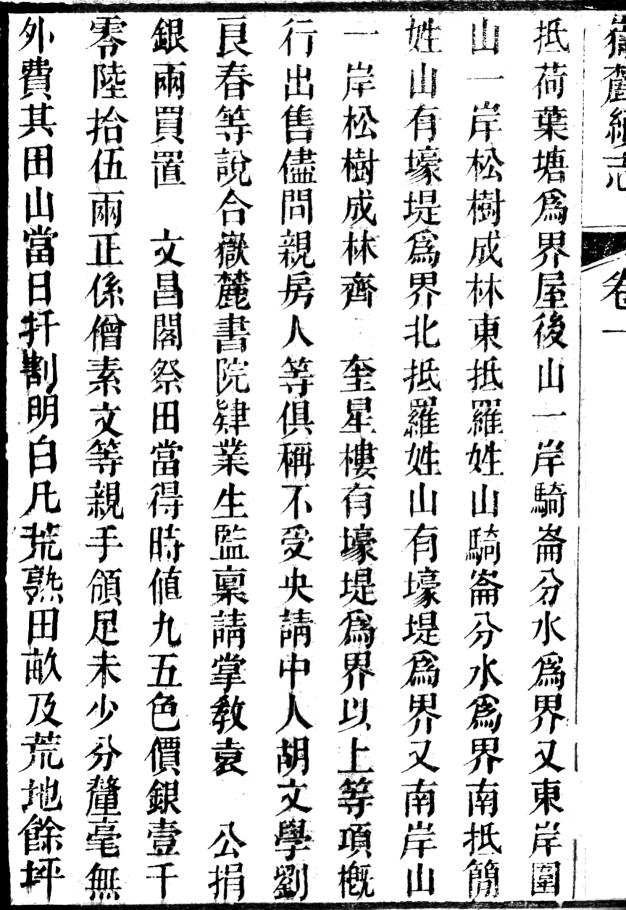 嶽麓續志 卷一
抵荷葉塘爲界屋後山一岸騎崙分水爲界又東岸圍
山一岸松樹成林東抵羅姓山騎崙分水爲界南抵簡
姓山有壕堤爲界北抵羅姓山有壕堤爲界又南岸山
一岸松樹成林齊 奎星樓有壕堤爲界以上等項槪
行出售儘問親房人等俱稱不受央請中人胡文學劉
良春等說合嶽麓書院肄業生監稟請掌教袁 公捐
銀兩買置 文昌閣祭田當得時値九五色價銀壹千
零陸拾伍兩正係僧素文等親手領足未少分釐毫無
外費其田山當日扦劃明白凡荒熟田畝及荒地餘坪